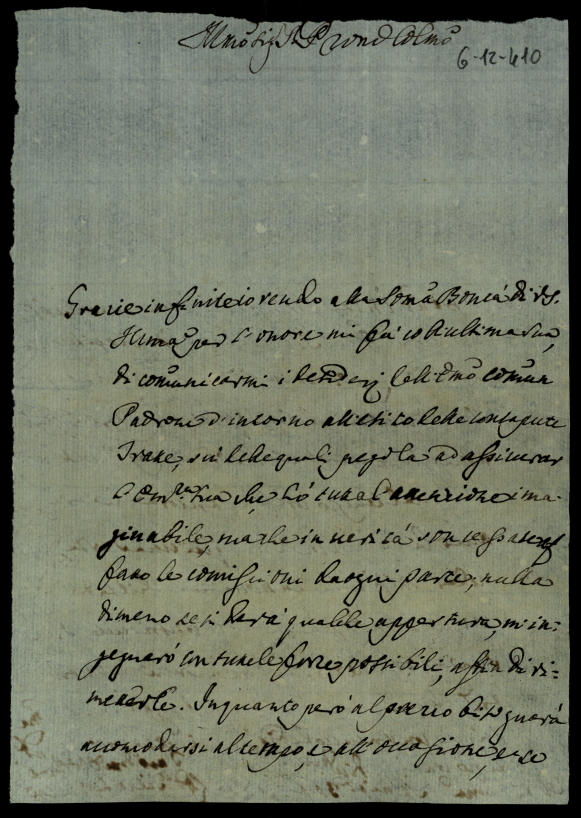 Illmo Sig.r Sr P.ron Colmo
6-12-410
Grazie infinite io rendo alla Somma Bontà di VS.
Illma per l'onore mi fà coll'ultima sua,
di comunicarmi i desiderj dell'Emo comun
Padrone d'intorno all'esito delle consapute
Trane, sù delle quali pregola ad assicurar
l'Em.za sua che hò tutta l'attenzione ima-
ginabile, ma che in verità son cessate
le comissioni da ogni parte, nulla
dimeno se si darà qualche appertura, m'in-
gegnarò con tutte le forze possibili, affin di ri-
meterle. In quanto però al prezzo bisognarà
accomodarsi al tempo, e all'occasione, e se